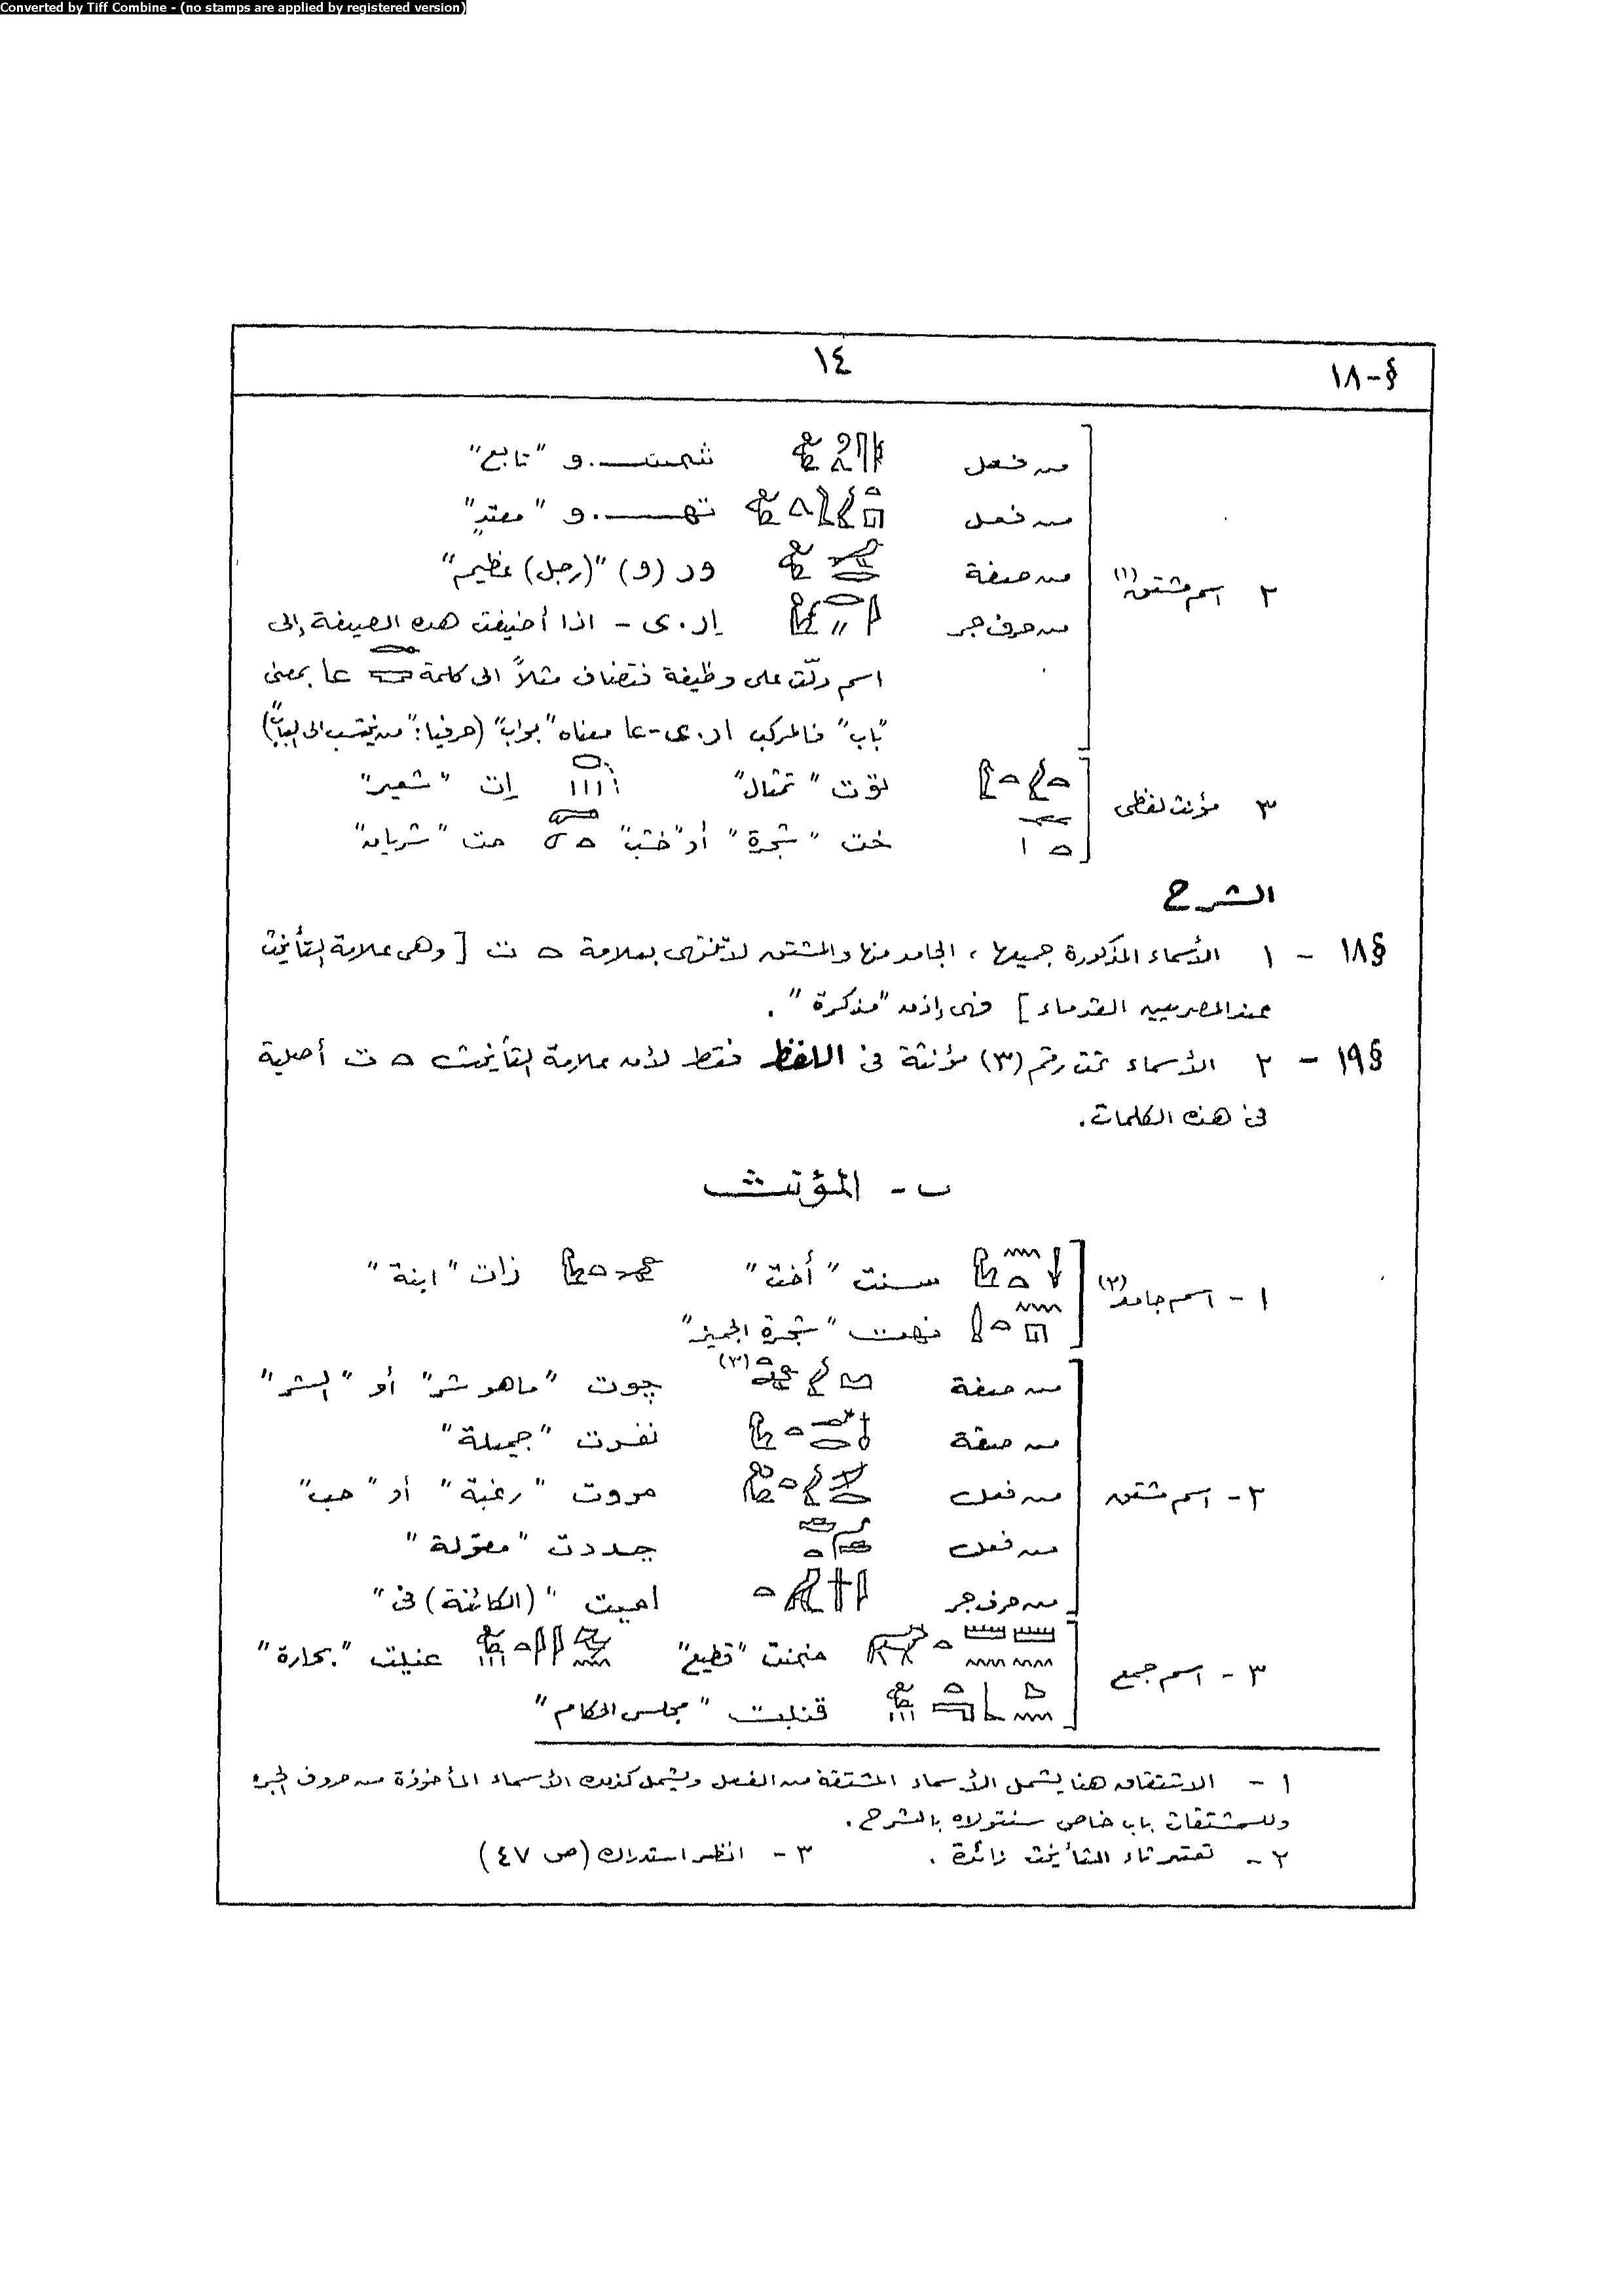 Converted by Tiff Combine - (no stamps are applied by registered version)
§-١٨
١٤
من فعل شمس.و "تابع"
من فعل تهـ.و "معتدٍ"
٢ اسم مشتق (١) من صفة ور (و) "(رجل) عظيم"
من حرف جر إر.ى - اذا أضيفت هذه الصيغة إلى
اسم دلّت على وظيفة فتضاف مثلاً الى كلمة عا بمعنى
"باب" فالمركب ار.ى-عا معناه "بواب" (حرفيا: "من ينتسب الى الباب")
٣ مؤنث لفظى توت "تمثال" إت "شعير"
خت "شجرة" أو "خشب" مت "شريان"
الشرح
§١٨ - ١ الأسماء المذكورة جميعها، الجامد منها والمشتق لا تنتهى بعلامة ت [وهى علامة التأنيث
عند المصريين القدماء] فهى إذن "مذكرة".
§١٩ - ٢ الأسماء تحت رقم (٣) مؤنثة فى اللفظ فقط لأن علامة التأنيث ت أصلية
فى هذه الكلمات.
ب - المؤنث
١ - اسم جامد (٢) سنت "أخت" زات "ابنة"
نهت "شجرة الجميز"
من صفة (٣) چوت "ما هو شر" أو "الشر"
من صفة نفرت "جميلة"
٢ - اسم مشتق من فعل مروت "رغبة" أو "حب"
من فعل جددت "مقولة"
من حرف جر اميت "(الكائنة) فى"
٣ - اسم جمع منمنت "قطيع" خنيت "بحارة"
قنبت "مجلس الحكام"
١ - الاشتقاق هنا يشمل الأسماء المشتقة من الفعل ويشمل كذلك الأسماء المأخوذة من حروف الجر
وللمشتقات باب خاص سنتولاه بالشرح.
٢ - تعتبر تاء التأنيث زائدة. ٣ - انظر استدراك (ص ٤٧)